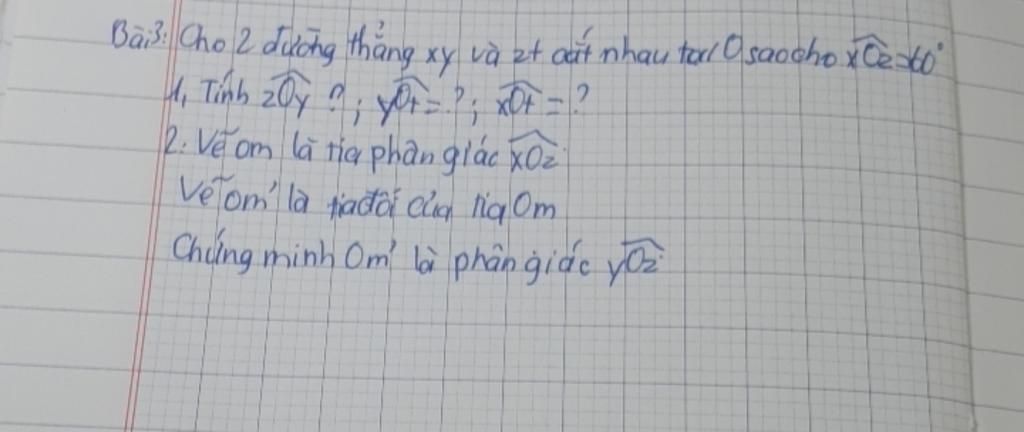 Bài3: Cho 2 đường thẳng xy và zt cắt nhau tại O sao cho xOz = 60°
1, Tính zOy ? ; yOt = ? ; xOt = ?
2. Vẽ om là tia phân giác xOz
Vẽ om' là tia đối của tia Om
Chứng minh Om' là phân giác yOz